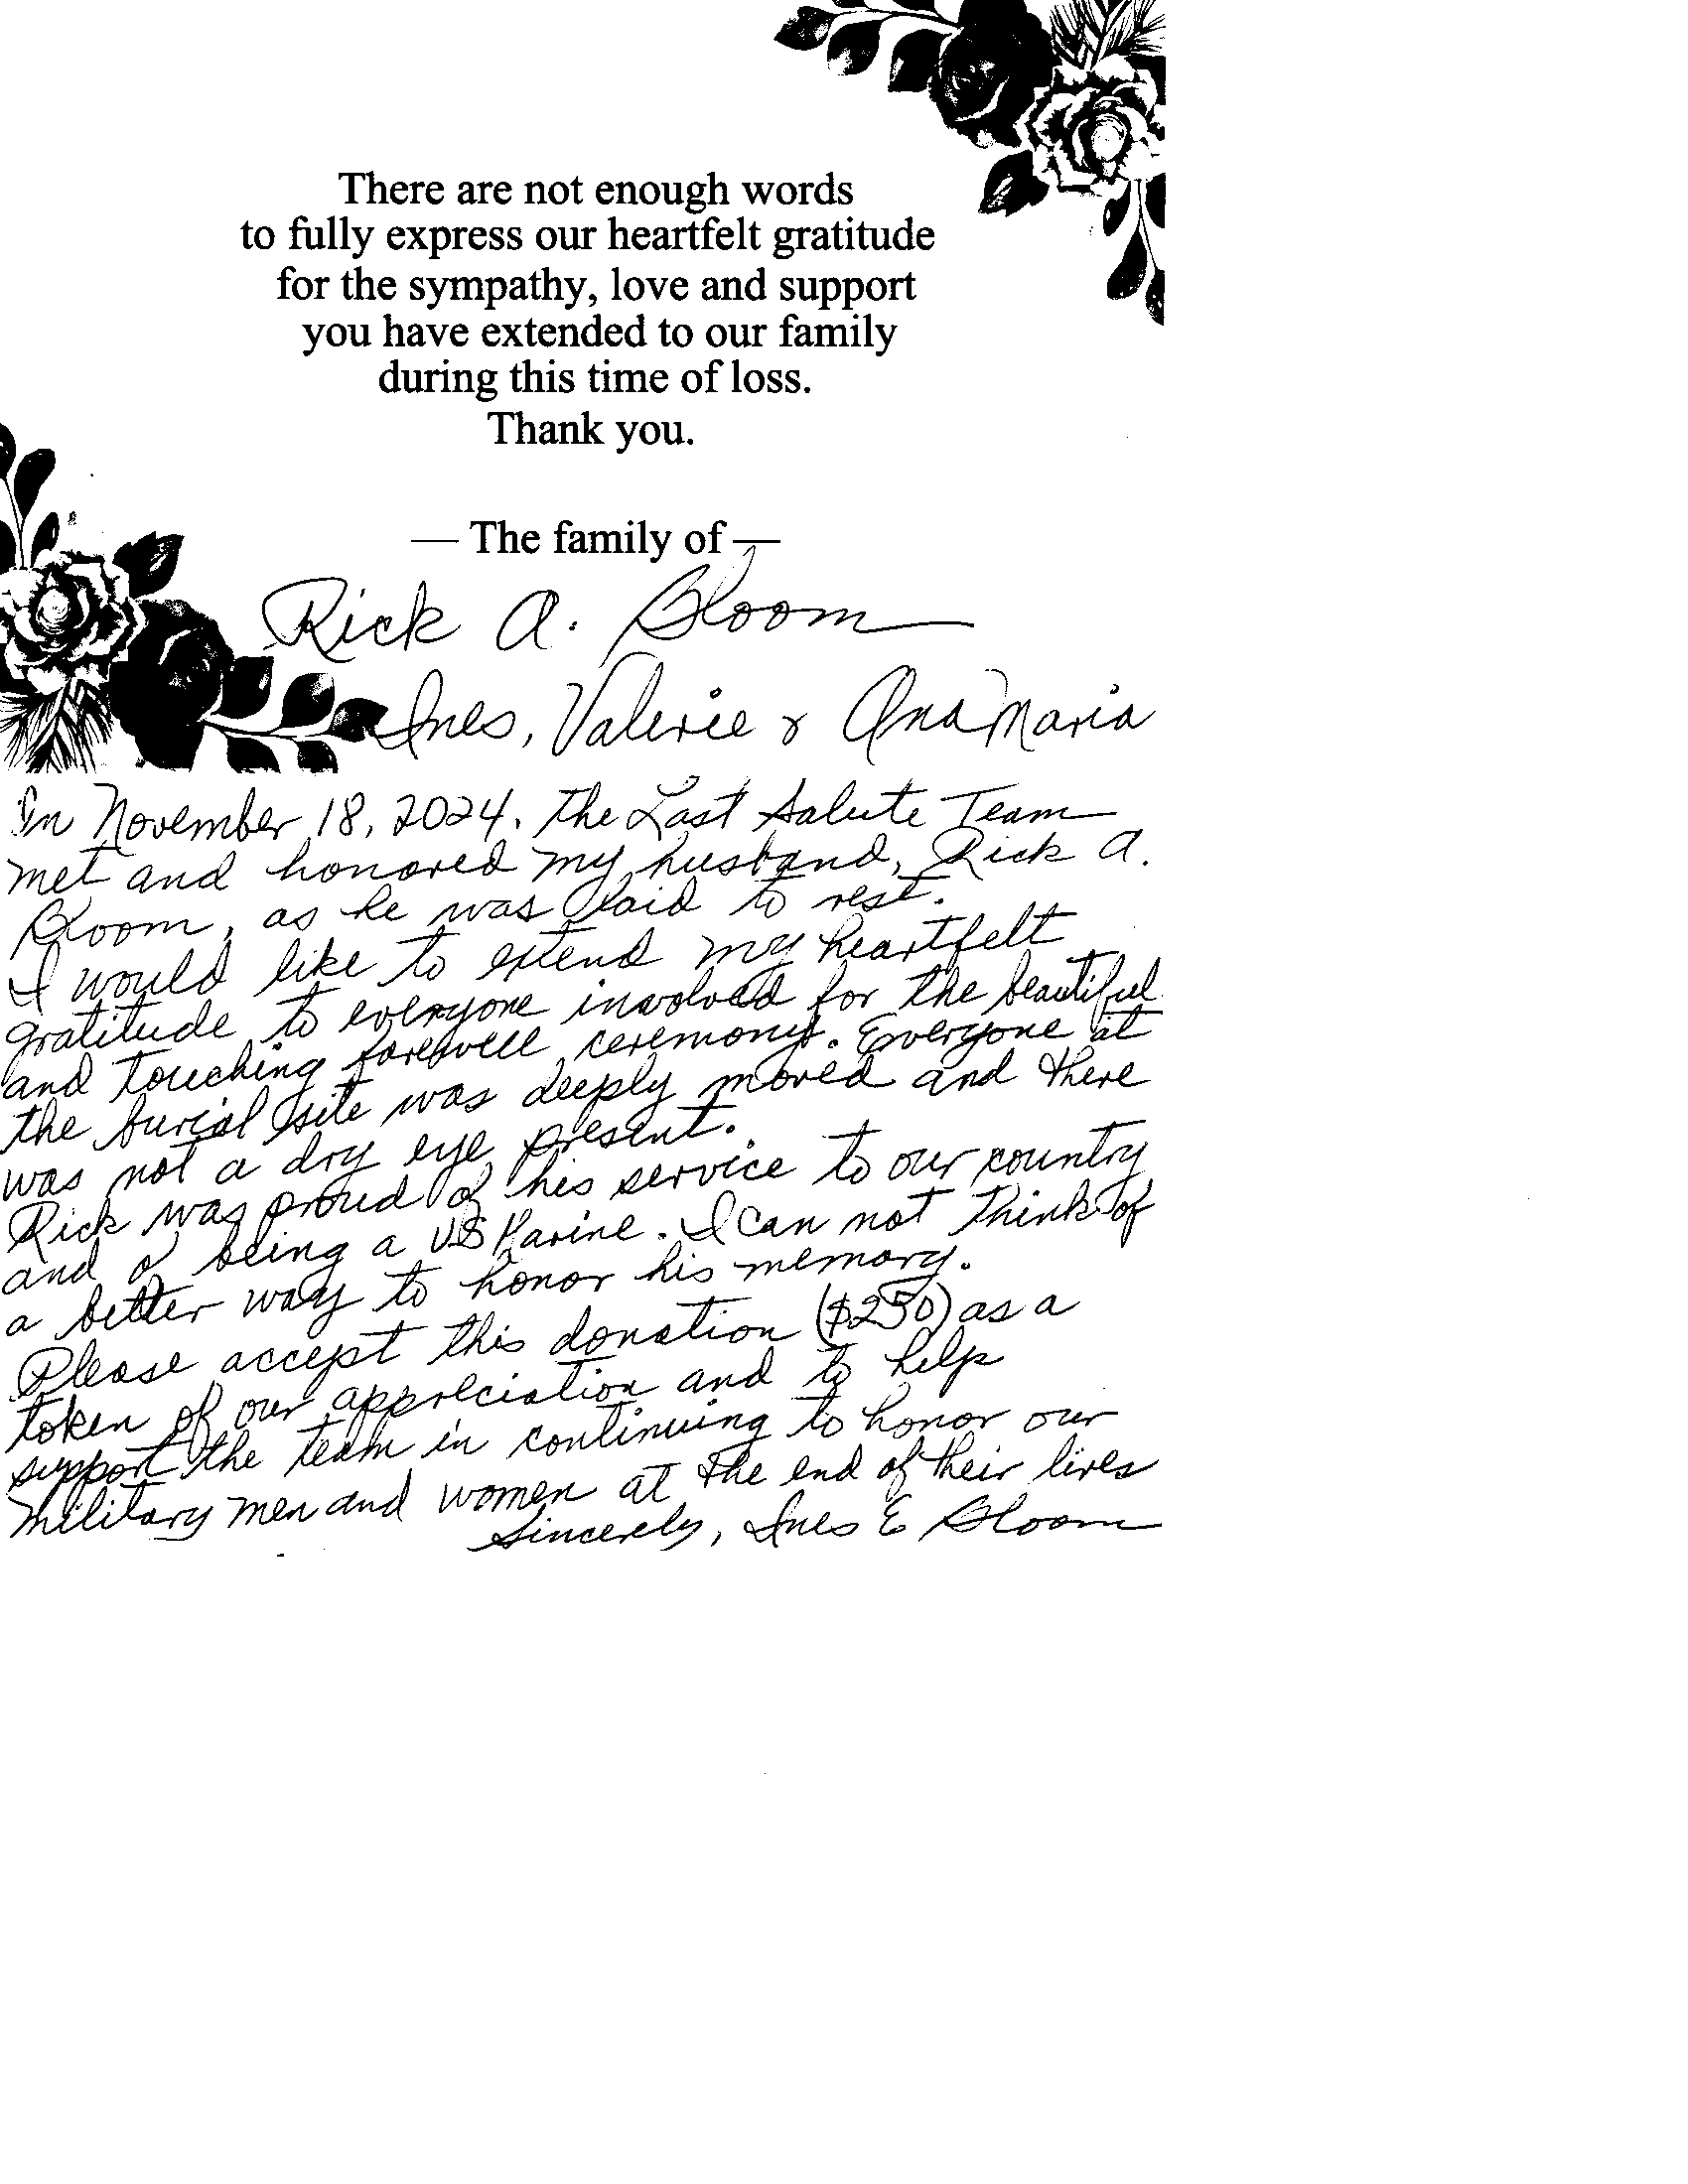 There are not enough words
to fully express our heartfelt gratitude
for the sympathy, love and support
you have extended to our family
during this time of loss.
Thank you.
— The family of —
Rick A. Bloom
Ines, Valerie & AnaMaria
In November 18, 2024. The Last Salute Team
met and honored my husband, Rick A.
Bloom, as he was laid to rest.
I would like to extend my heartfelt
gratitude to everyone involved for the beautiful
and touching farewell ceremony. Everyone at
the burial site was deeply moved and there
was not a dry eye present.
Rick was proud of his service to our country
and of being a US Marine. I can not think of
a better way to honor his memory.
Please accept this donation ($250) as a
token of our appreciation and to help
support the team in continuing to honor our
military men and women at the end of their lives
Sincerely, Ines E Bloom